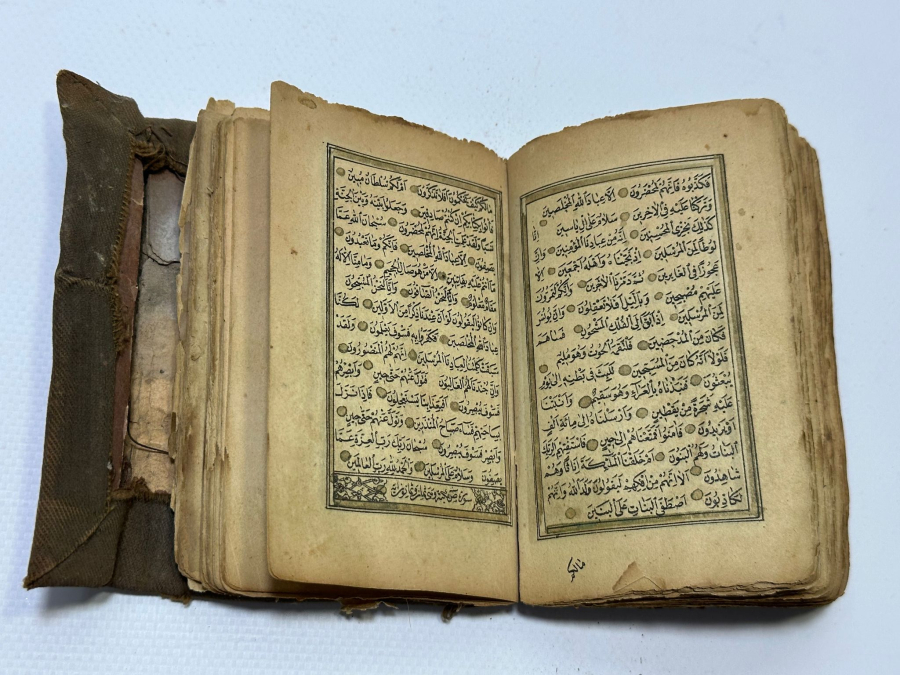 فَكَذَّبُوهُ فَإِنَّهُمْ لَمُحْضَرُونَ إِلَّا عِبَادَ اللَّهِ الْمُخْلَصِينَ
وَتَرَكْنَا عَلَيْهِ فِي الْآخِرِينَ سَلَامٌ عَلَى إِلْ يَاسِينَ إِنَّا
كَذَلِكَ نَجْزِي الْمُحْسِنِينَ إِنَّهُ مِنْ عِبَادِنَا الْمُؤْمِنِينَ وَإِنَّ
لُوطًا لَمِنَ الْمُرْسَلِينَ إِذْ نَجَّيْنَاهُ وَأَهْلَهُ أَجْمَعِينَ إِلَّا
عَجُوزًا فِي الْغَابِرِينَ ثُمَّ دَمَّرْنَا الْآخَرِينَ وَإِنَّكُمْ لَتَمُرُّونَ
عَلَيْهِمْ مُصْبِحِينَ وَبِاللَّيْلِ أَفَلَا تَعْقِلُونَ وَإِنَّ يُونُسَ
لَمِنَ الْمُرْسَلِينَ إِذْ أَبَقَ إِلَى الْفُلْكِ الْمَشْحُونِ فَسَاهَمَ
فَكَانَ مِنَ الْمُدْحَضِينَ فَالْتَقَمَهُ الْحُوتُ وَهُوَ مُلِيمٌ
فَلَوْلَا أَنَّهُ كَانَ مِنَ الْمُسَبِّحِينَ لَلَبِثَ فِي بَطْنِهِ إِلَى يَوْمِ
يُبْعَثُونَ فَنَبَذْنَاهُ بِالْعَرَاءِ وَهُوَ سَقِيمٌ وَأَنْبَتْنَا
عَلَيْهِ شَجَرَةً مِنْ يَقْطِينٍ وَأَرْسَلْنَاهُ إِلَى مِائَةِ أَلْفٍ
أَوْ يَزِيدُونَ فَآمَنُوا فَمَتَّعْنَاهُمْ إِلَى حِينٍ فَاسْتَفْتِهِمْ أَلِرَبِّكَ
الْبَنَاتُ وَلَهُمُ الْبَنُونَ أَمْ خَلَقْنَا الْمَلٰئِكَةَ إِنَاثًا وَهُمْ
شَاهِدُونَ أَلَا إِنَّهُمْ مِنْ إِفْكِهِمْ لَيَقُولُونَ وَلَدَ اللَّهُ وَإِنَّهُمْ
لَكَاذِبُونَ أَصْطَفَى الْبَنَاتِ عَلَى الْبَنِينَ
مالكم
مَا لَكُمْ كَيْفَ تَحْكُمُونَ أَفَلَا تَذَكَّرُونَ أَمْ لَكُمْ سُلْطَانٌ مُبِينٌ
فَأْتُوا بِكِتَابِكُمْ إِنْ كُنْتُمْ صَادِقِينَ وَجَعَلُوا بَيْنَهُ وَبَيْنَ الْجِنَّةِ
نَسَبًا وَلَقَدْ عَلِمَتِ الْجِنَّةُ إِنَّهُمْ لَمُحْضَرُونَ سُبْحَانَ اللَّهِ عَمَّا
يَصِفُونَ إِلَّا عِبَادَ اللَّهِ الْمُخْلَصِينَ فَإِنَّكُمْ وَمَا تَعْبُدُونَ
مَا أَنْتُمْ عَلَيْهِ بِفَاتِنِينَ إِلَّا مَنْ هُوَ صَالِ الْجَحِيمِ وَمَا مِنَّا إِلَّا لَهُ
مَقَامٌ مَعْلُومٌ وَإِنَّا لَنَحْنُ الصَّافُّونَ وَإِنَّا لَنَحْنُ الْمُسَبِّحُونَ
وَإِنْ كَانُوا لَيَقُولُونَ لَوْ أَنَّ عِنْدَنَا ذِكْرًا مِنَ الْأَوَّلِينَ لَكُنَّا
عِبَادَ اللَّهِ الْمُخْلَصِينَ فَكَفَرُوا بِهِ فَسَوْفَ يَعْلَمُونَ وَلَقَدْ
سَبَقَتْ كَلِمَتُنَا لِعِبَادِنَا الْمُرْسَلِينَ إِنَّهُمْ لَهُمُ الْمَنْصُورُونَ
وَإِنَّ جُنْدَنَا لَهُمُ الْغَالِبُونَ فَتَوَلَّ عَنْهُمْ حَتَّى حِينٍ وَأَبْصِرْهُمْ
فَسَوْفَ يُبْصِرُونَ أَفَبِعَذَابِنَا يَسْتَعْجِلُونَ فَإِذَا نَزَلَ
بِسَاحَتِهِمْ فَسَاءَ صَبَاحُ الْمُنْذَرِينَ وَتَوَلَّ عَنْهُمْ حَتَّى حِينٍ
وَأَبْصِرْ فَسَوْفَ يُبْصِرُونَ سُبْحَانَ رَبِّكَ رَبِّ الْعِزَّةِ عَمَّا
يَصِفُونَ وَسَلَامٌ عَلَى الْمُرْسَلِينَ وَالْحَمْدُ لِلَّهِ رَبِّ الْعَالَمِينَ